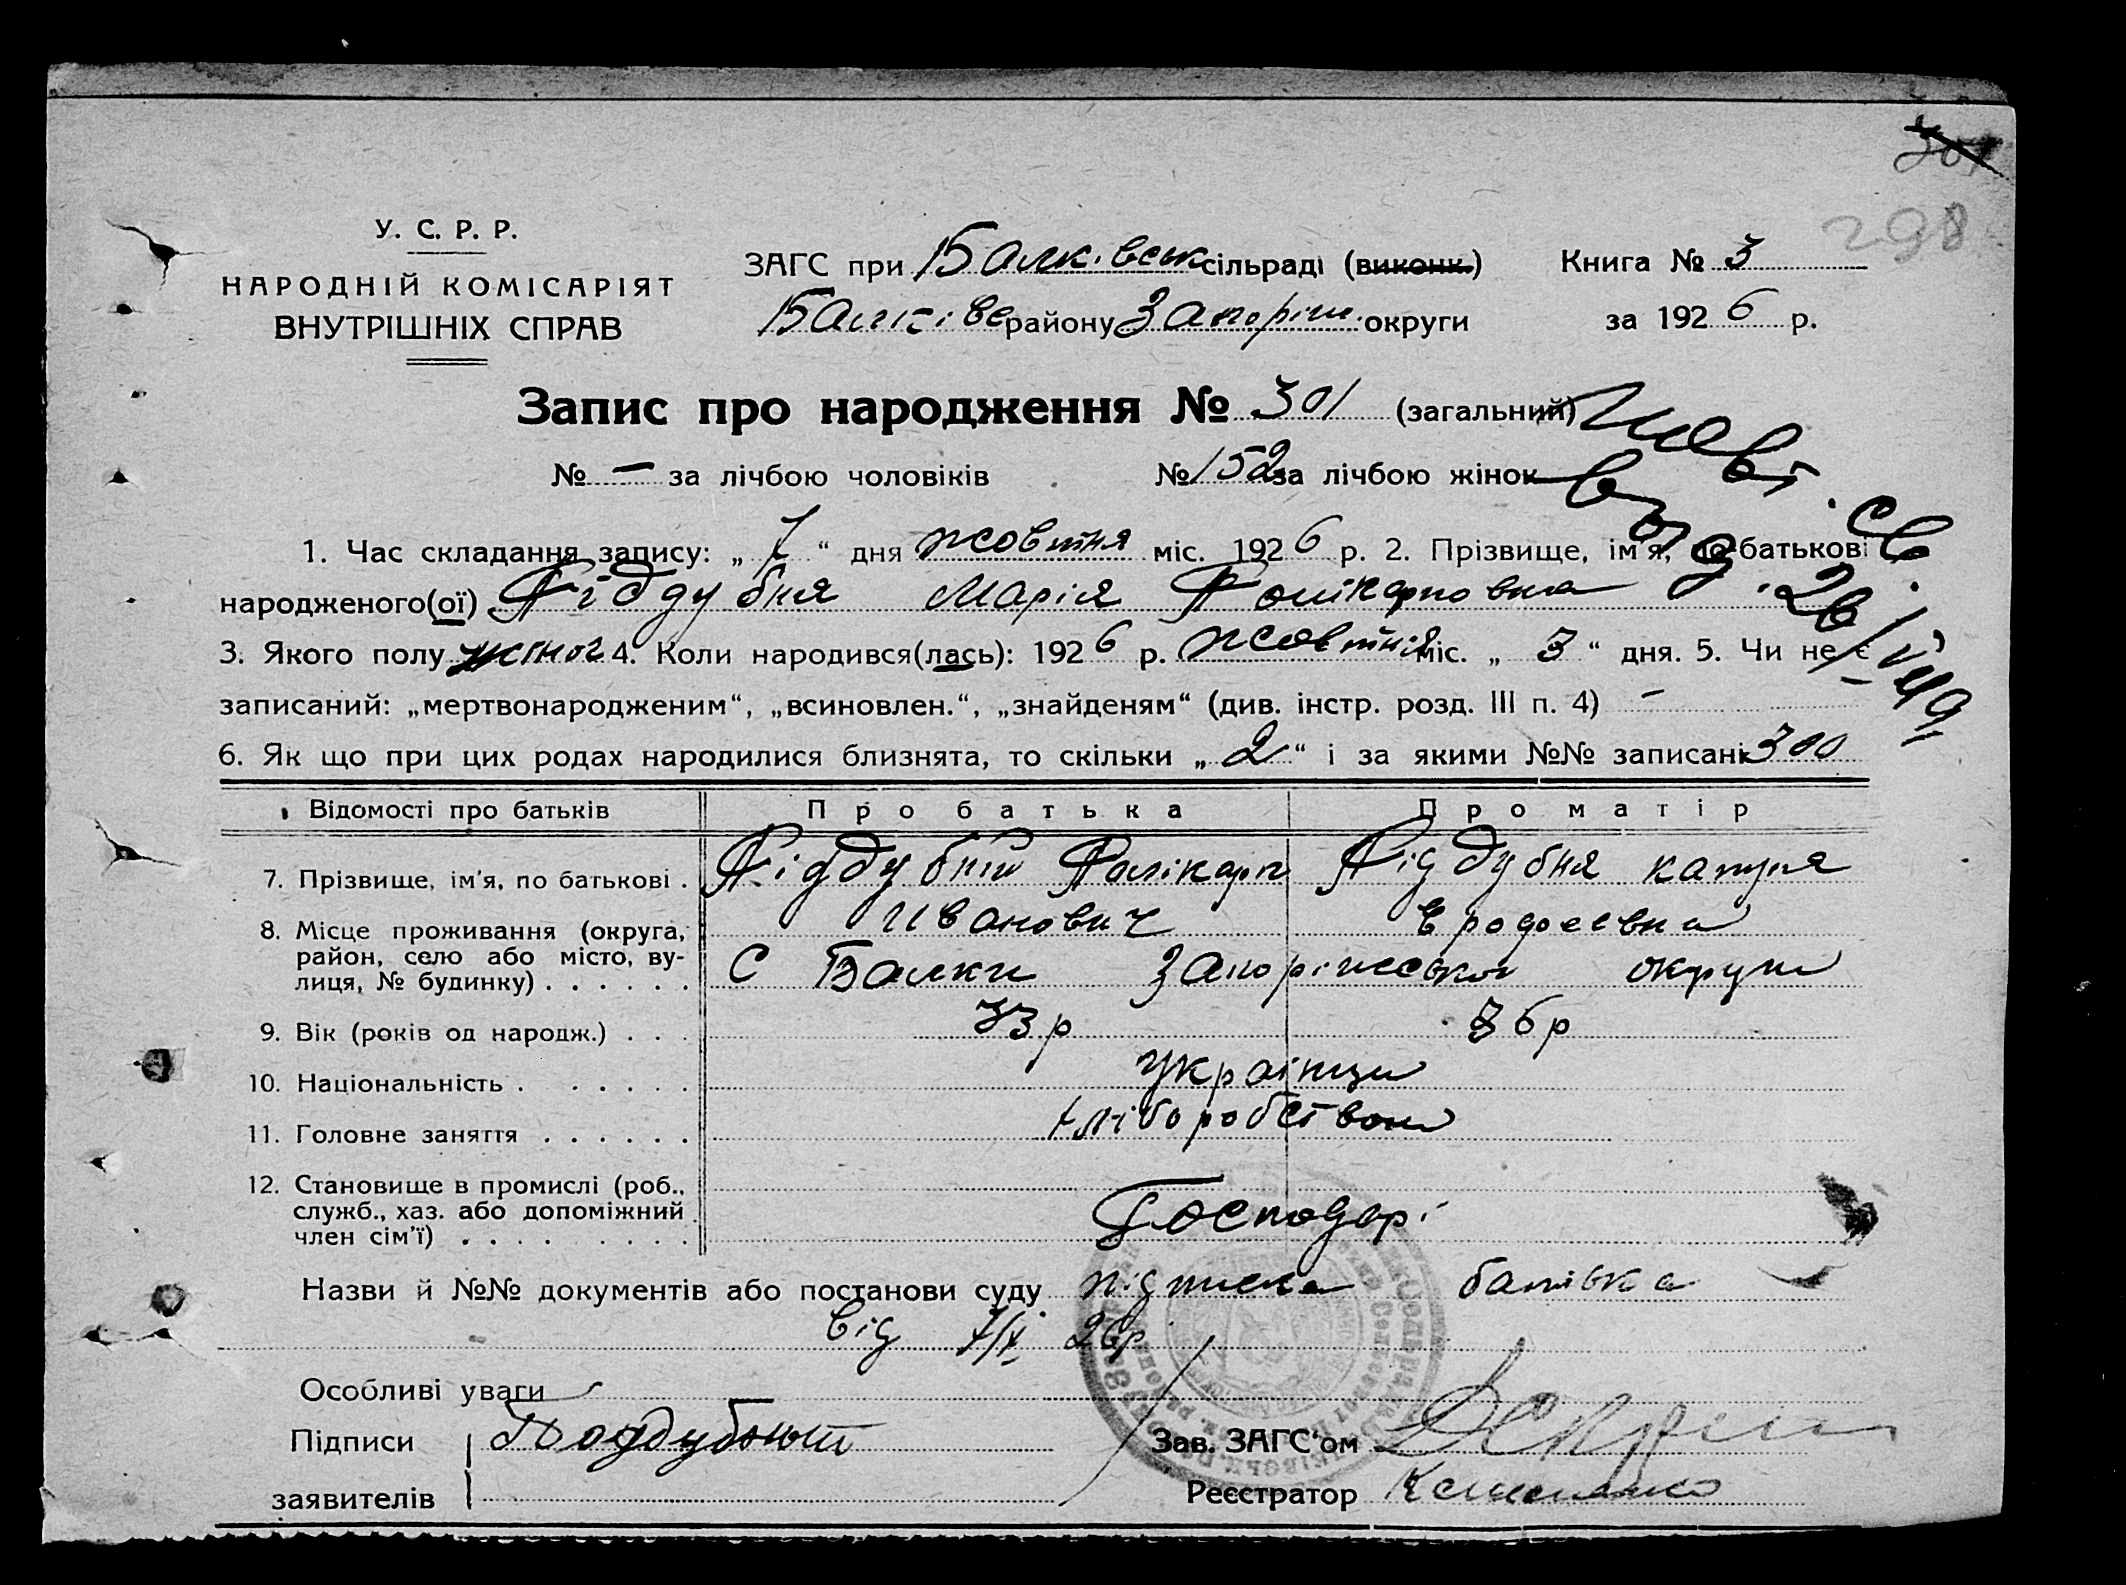 298
У. С. Р. Р.
НАРОДНІЙ КОМІСАРІЯТ
ВНУТРІШНІХ СПРАВ
ЗАГС при Балківськ сільраді (виконк.) Книга № 3
Балківс району Запоріж. округи за 1926 р.
Запис про народження № 301 (загальний)
№ — за лічбою чоловіків № 152 за лічбою жінок
1. Час складання запису: „ 7 “ дня жовтня міс. 1926 р. 2. Прізвище, ім'я, по-батькові
народженого(ої) Піддубня Марія Полікарповна
3. Якого полу жіноч 4. Коли народився(лась): 1926 р. жовтня міс. „ 3 “ дня. 5. Чи не є
записаний: „мертвонародженим“, „всиновлен.“, „знайденям“ (див. інстр. розд. III п. 4) –
6. Як що при цих родах народилися близнята, то скільки „ 2 “ і за якими №№ записані 300
Відомості про батьків Про батька Про матір
7. Прізвище, ім'я, по батькові . Піддубній Полікарп Піддубня
Иванович
8. Місце проживання (округа,
район, село або місто, ву-
лиця, № будинку) . . . . . . С Балки Запоріжської округи
9. Вік (років од народж.) . . . 33 р 36 р
10. Національність . . . . . . українци
11. Головне заняття . . . . . . хліборобством
12. Становище в промислі (роб.,
служб., хаз. або допоміжний
член сім'ї) . . . . . . . . Господарі
Назви й №№ документів або постанови суду підписка батька
від 7/X 26р
Особливі уваги
Підписи Поддубный Зав. ЗАГС'ом
заявителів Реєстратор